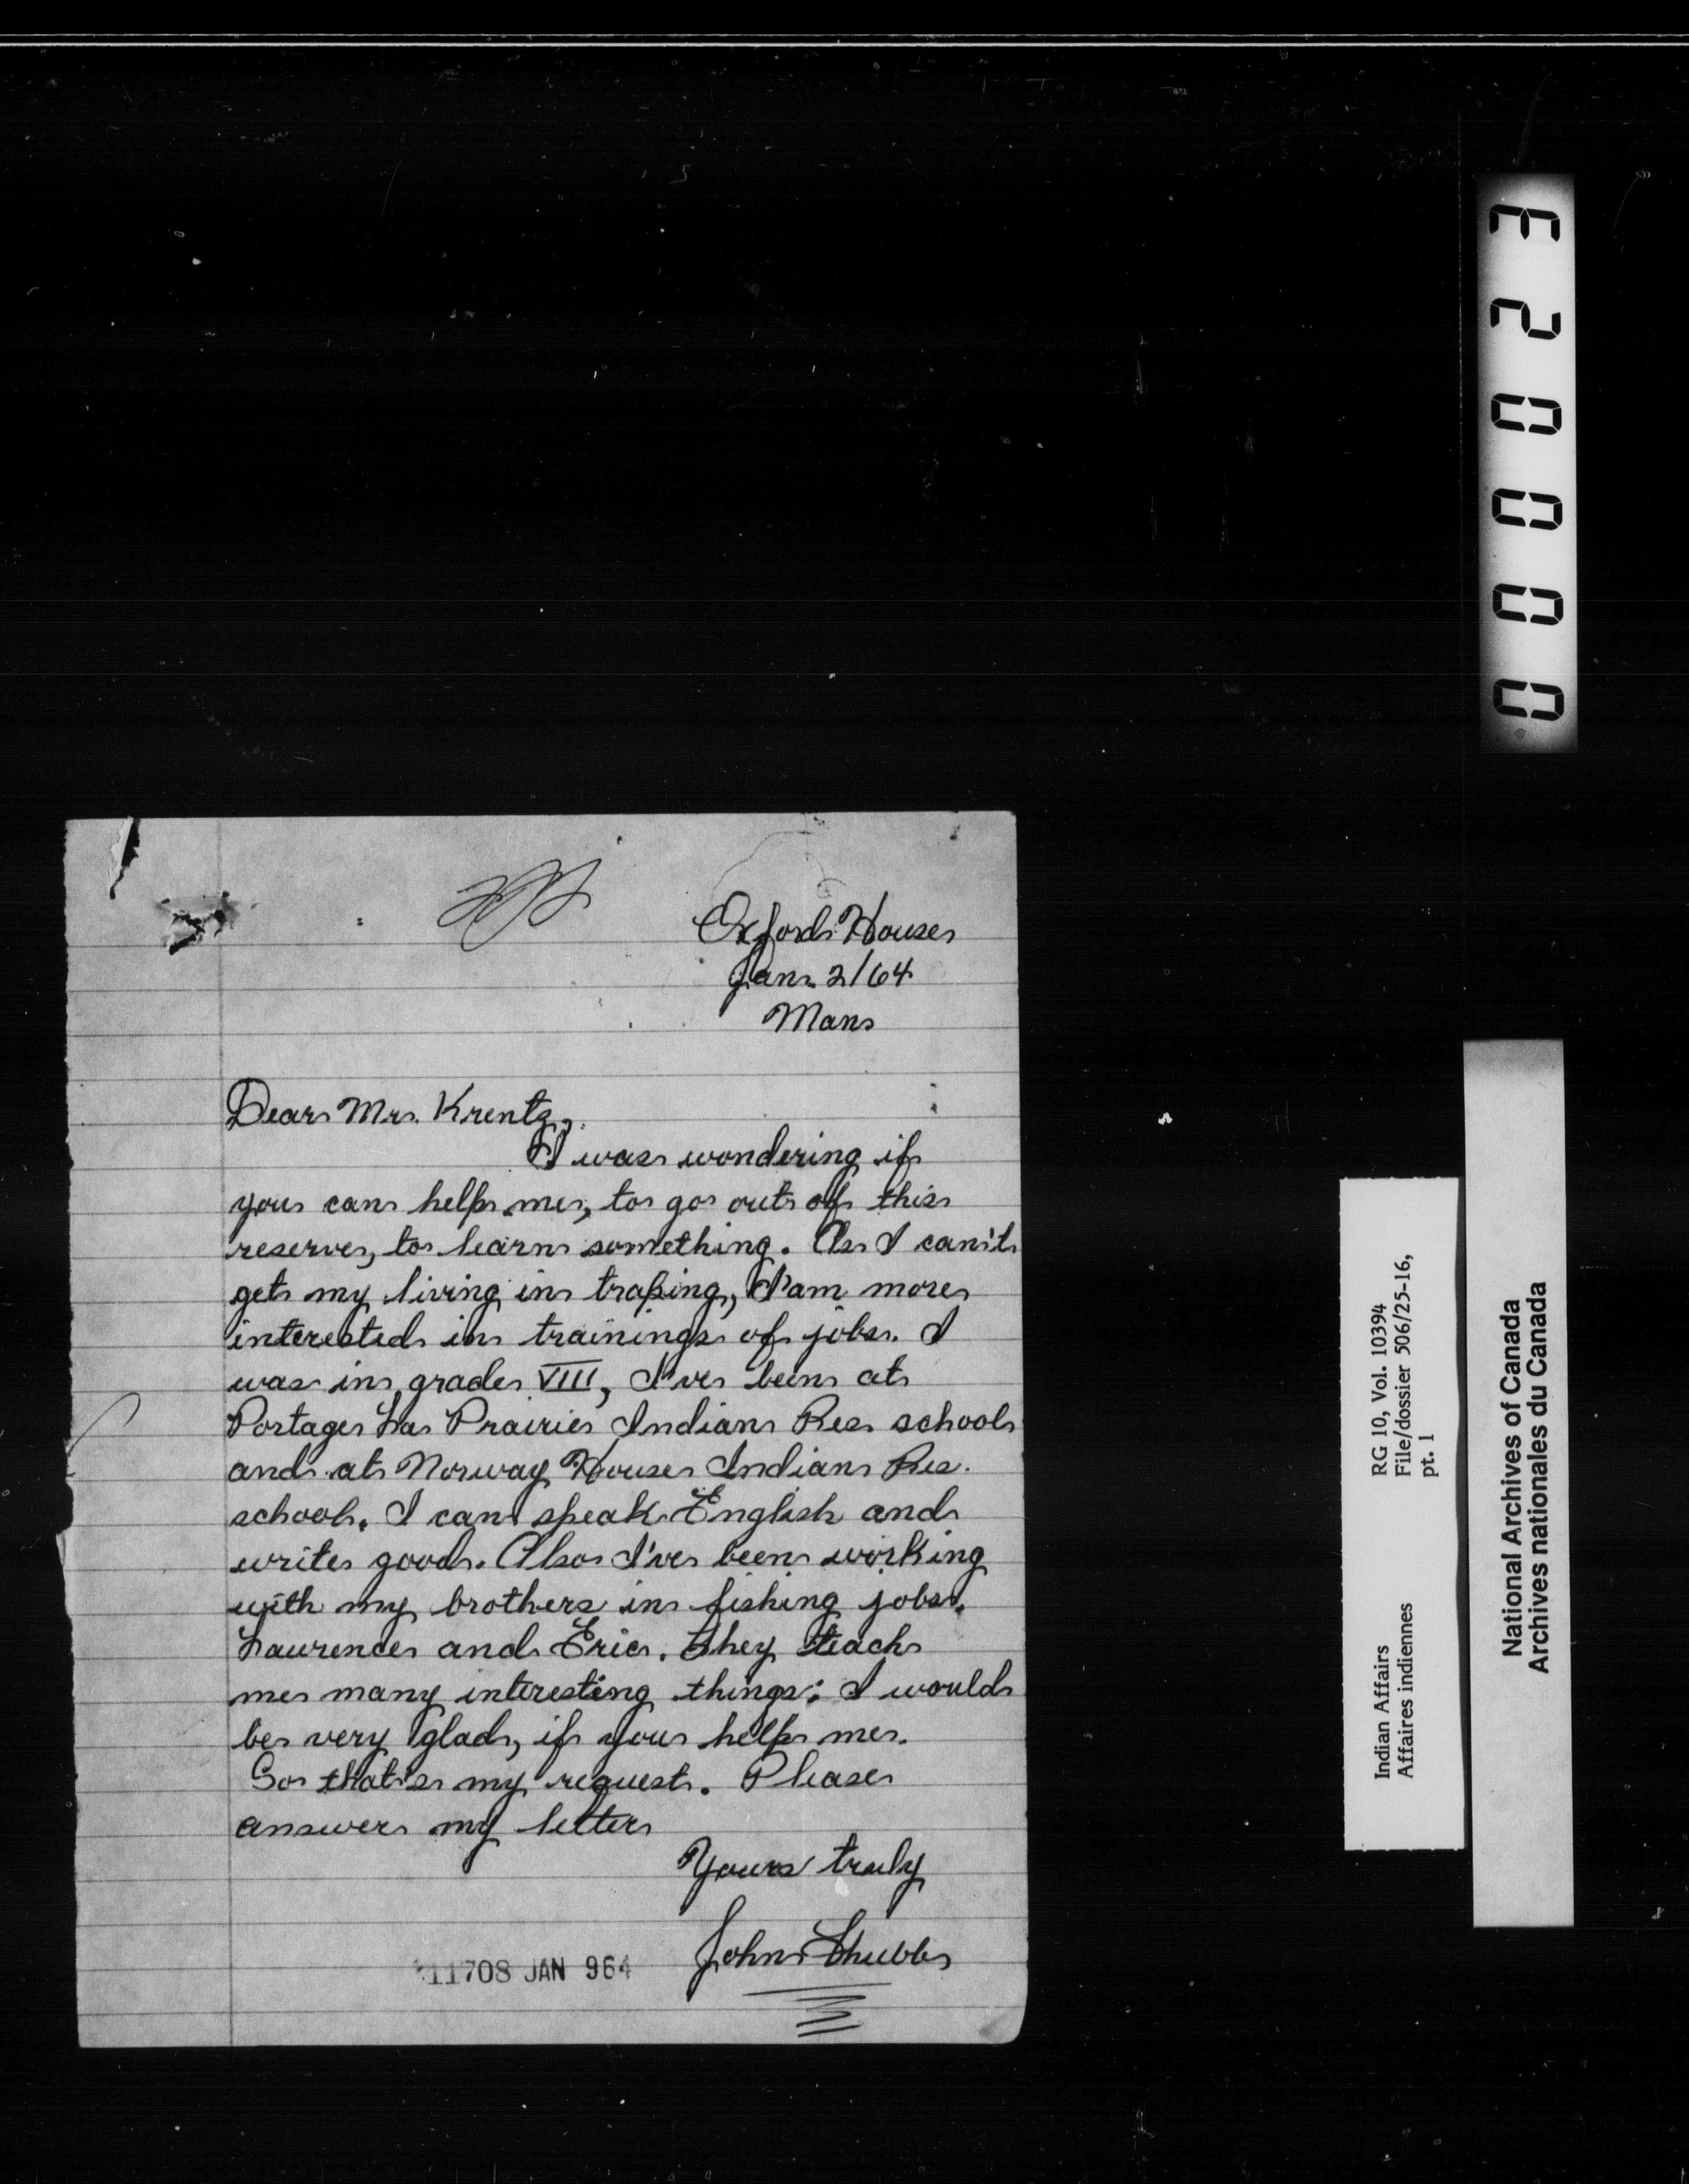 Oxford House
Jan. 2/64
Man
Dear Mr. Krentz,
I was wondering if
you can help me, to go out of this
reserve, to learn something. As I can't
get my living in traping, I'am more
interested in trainings of jobs. I
was in grade VIII, I've been at
Portage La Prairie Indian Res school
and at Norway House Indian Res.
school. I can speak English and
write good. Also I've been working
with my brothers in fishing jobs.
Laurence and Eric. They teach
me many interesting things; I would
be very glad, if you help me.
So that's my request. Please
answer my letter
Yours truly
John
11708 JAN 964
000023
RG 10, Vol. 10394
Indian Affairs File/dossier 506/25-16,
Affaires indiennes pt. 1
National Archives of Canada
Archives nationales du Canada